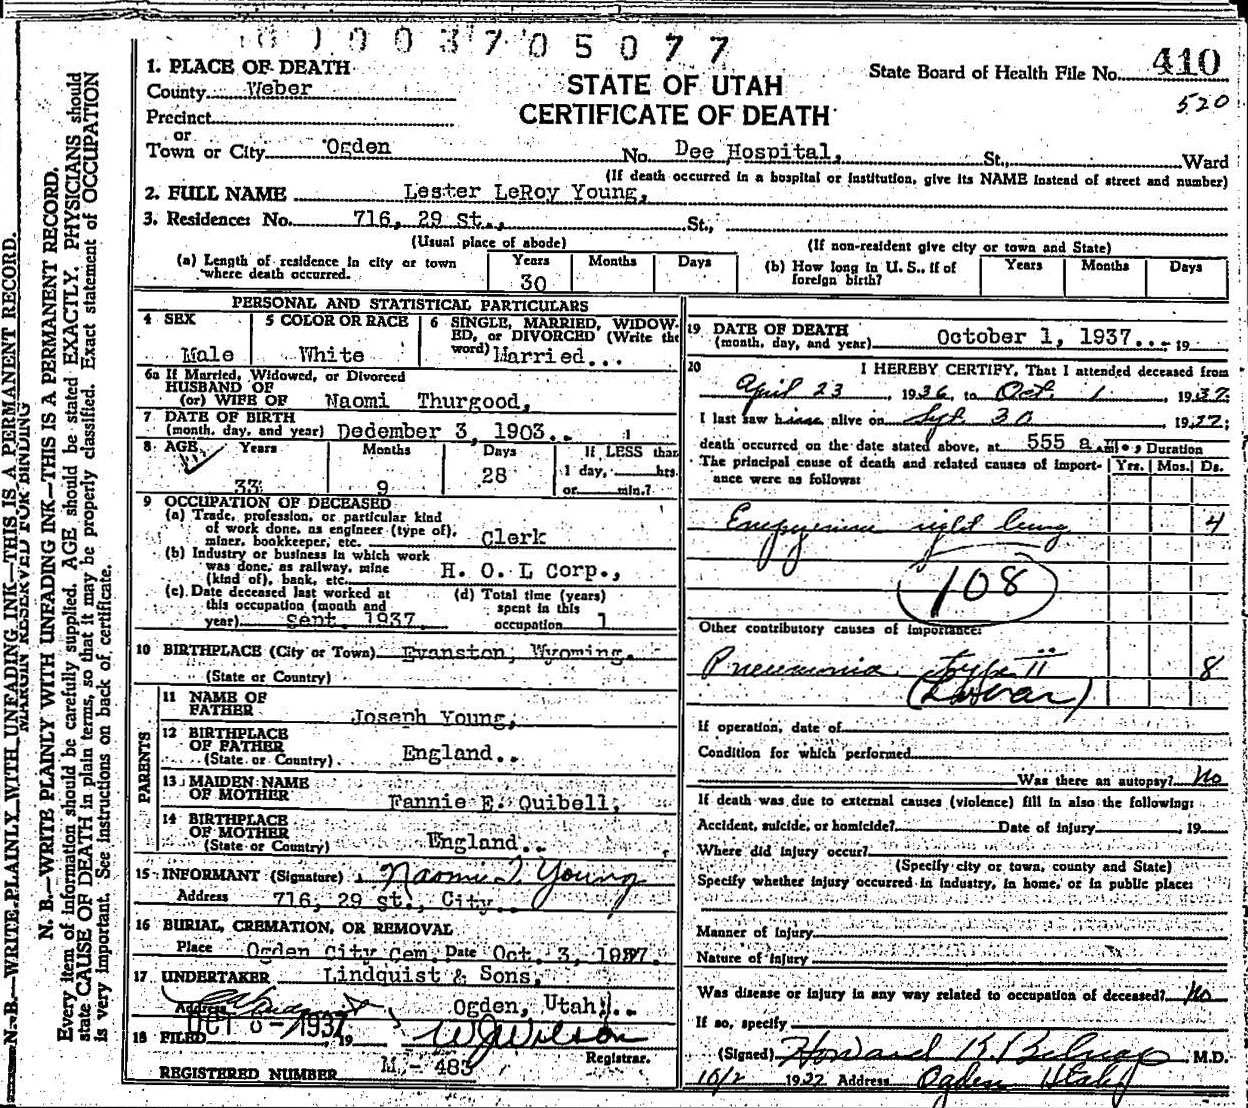 1003705077
1. PLACE OF DEATH
County Weber
Precinct
or
Town or City Ogden
STATE OF UTAH
CERTIFICATE OF DEATH
State Board of Health File No. 410
520
No. Dee Hospital, St., Ward
(If death occurred in a hospital or institution, give its NAME instead of street and number)
2. FULL NAME Lester LeRoy Young,
3. Residence: No. 716, 29 st., St.,
(Usual place of abode)
(If non-resident give city or town and State)
(a) Length of residence in city or town where death occurred. Years 30 Months Days
(b) How long in U. S., if of foreign birth? Years Months Days
PERSONAL AND STATISTICAL PARTICULARS
4 SEX Male
5 COLOR OR RACE White
6 SINGLE, MARRIED, WIDOWED, or DIVORCED (Write the word) Married...
6a If Married, Widowed, or Divorced
HUSBAND OF
(or) WIFE OF Naomi Thurgood,
7 DATE OF BIRTH
(month, day, and year) Dedember 3, 1903..
8 AGE Years 33 Months 9 Days 28 If LESS than 1 day, hrs. or min.?
9 OCCUPATION OF DECEASED
(a) Trade, profession, or particular kind
of work done, as engineer (type of),
miner, bookkeeper, etc. Clerk
(b) Industry or business in which work
was done, as railway, mine
(kind of), bank, etc. H. O. L Corp.,
(c) Date deceased last worked at
this occupation (month and
year) sept. 1937.
(d) Total time (years)
spent in this
occupation 1
10 BIRTHPLACE (City or Town) Evanston, Wyoming.
(State or Country)
PARENTS
11 NAME OF
FATHER Joseph Young,
12 BIRTHPLACE
OF FATHER England..
(State or Country)
13 MAIDEN NAME
OF MOTHER Fannie E. Quibell,
14 BIRTHPLACE
OF MOTHER England..
(State or Country)
15 INFORMANT (Signature) Naomi T. Young
Address 716, 29 st., City..
16 BURIAL, CREMATION, OR REMOVAL
Place Ogden City Cem. Date Oct. 3, 1937.
17 UNDERTAKER Lindquist & Sons,
Address Ogden, Utah..
18 FILED OCT 1937, 19 W J Wilson
Registrar.
REGISTERED NUMBER M - 483
19 DATE OF DEATH
(month, day, and year) October 1, 1937... 19
20 I HEREBY CERTIFY, That I attended deceased from
April 23, 1936, to Oct. 1, 1937.
I last saw alive on Sept. 30 1937;
death occurred on the date stated above, at 555 a.m., Duration
The principal cause of death and related causes of importance were as follows: Yrs. Mos. Ds.
Empyema right lung 4
108
Other contributory causes of importance:
Pneumonia type II 8
(Lobar)
If operation, date of
Condition for which performed
Was there an autopsy? No
If death was due to external causes (violence) fill in also the following:
Accident, suicide, or homicide? Date of injury , 19
Where did injury occur?
(Specify city or town, county and State)
Specify whether injury occurred in industry, in home, or in public place:
Manner of injury
Nature of injury
Was disease or injury in any way related to occupation of deceased? No
If so, specify
(Signed) Howard K. Belnap M.D.
10/2 1937 Address Ogden Utah
N. B.—WRITE PLAINLY WITH UNFADING INK—THIS IS A PERMANENT RECORD.
MARGIN RESERVED FOR BINDING
N. B.—WRITE PLAINLY WITH UNFADING INK—THIS IS A PERMANENT RECORD.
Every item of information should be carefully supplied. AGE should be stated EXACTLY. PHYSICIANS should
state CAUSE OF DEATH in plain terms, so that it may be properly classified. Exact statement of OCCUPATION
is very important. See instructions on back of certificate.